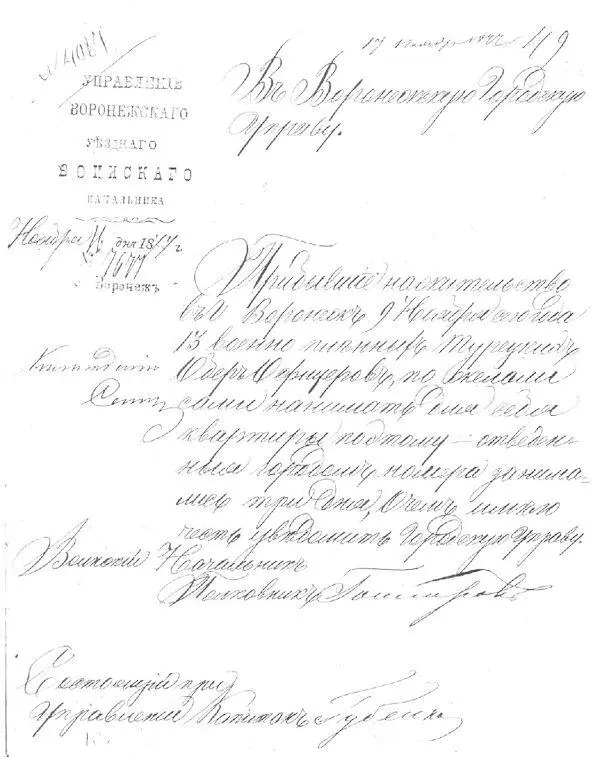 № 4084
17 Ноября 1877 49
УПРАВЛЕНІЕ
ВОРОНЕЖСКАГО
УѢЗДНАГО
ВОИНСКАГО
НАЧАЛЬНИКА
Ноября 16 дня 1877 г.
№ 7677
Воронежъ
Въ Воронежскую Городскую
Управу.
Прибывшіе на жительство
въ г Воронежъ 9 Ноября сего года
13 военно плѣнныхъ Турецкихъ
Оберъ Офицеровъ, по желали
сами нанимать для себя
квартиры поэтому отведен-
ныя городомъ номера занима-
лись три дня, о чемъ имѣю
честь увѣдомить Городскую Управу.
Воинскій Начальникъ
Полковникъ
Состоящій при
Управленіи Капитанъ Губенко